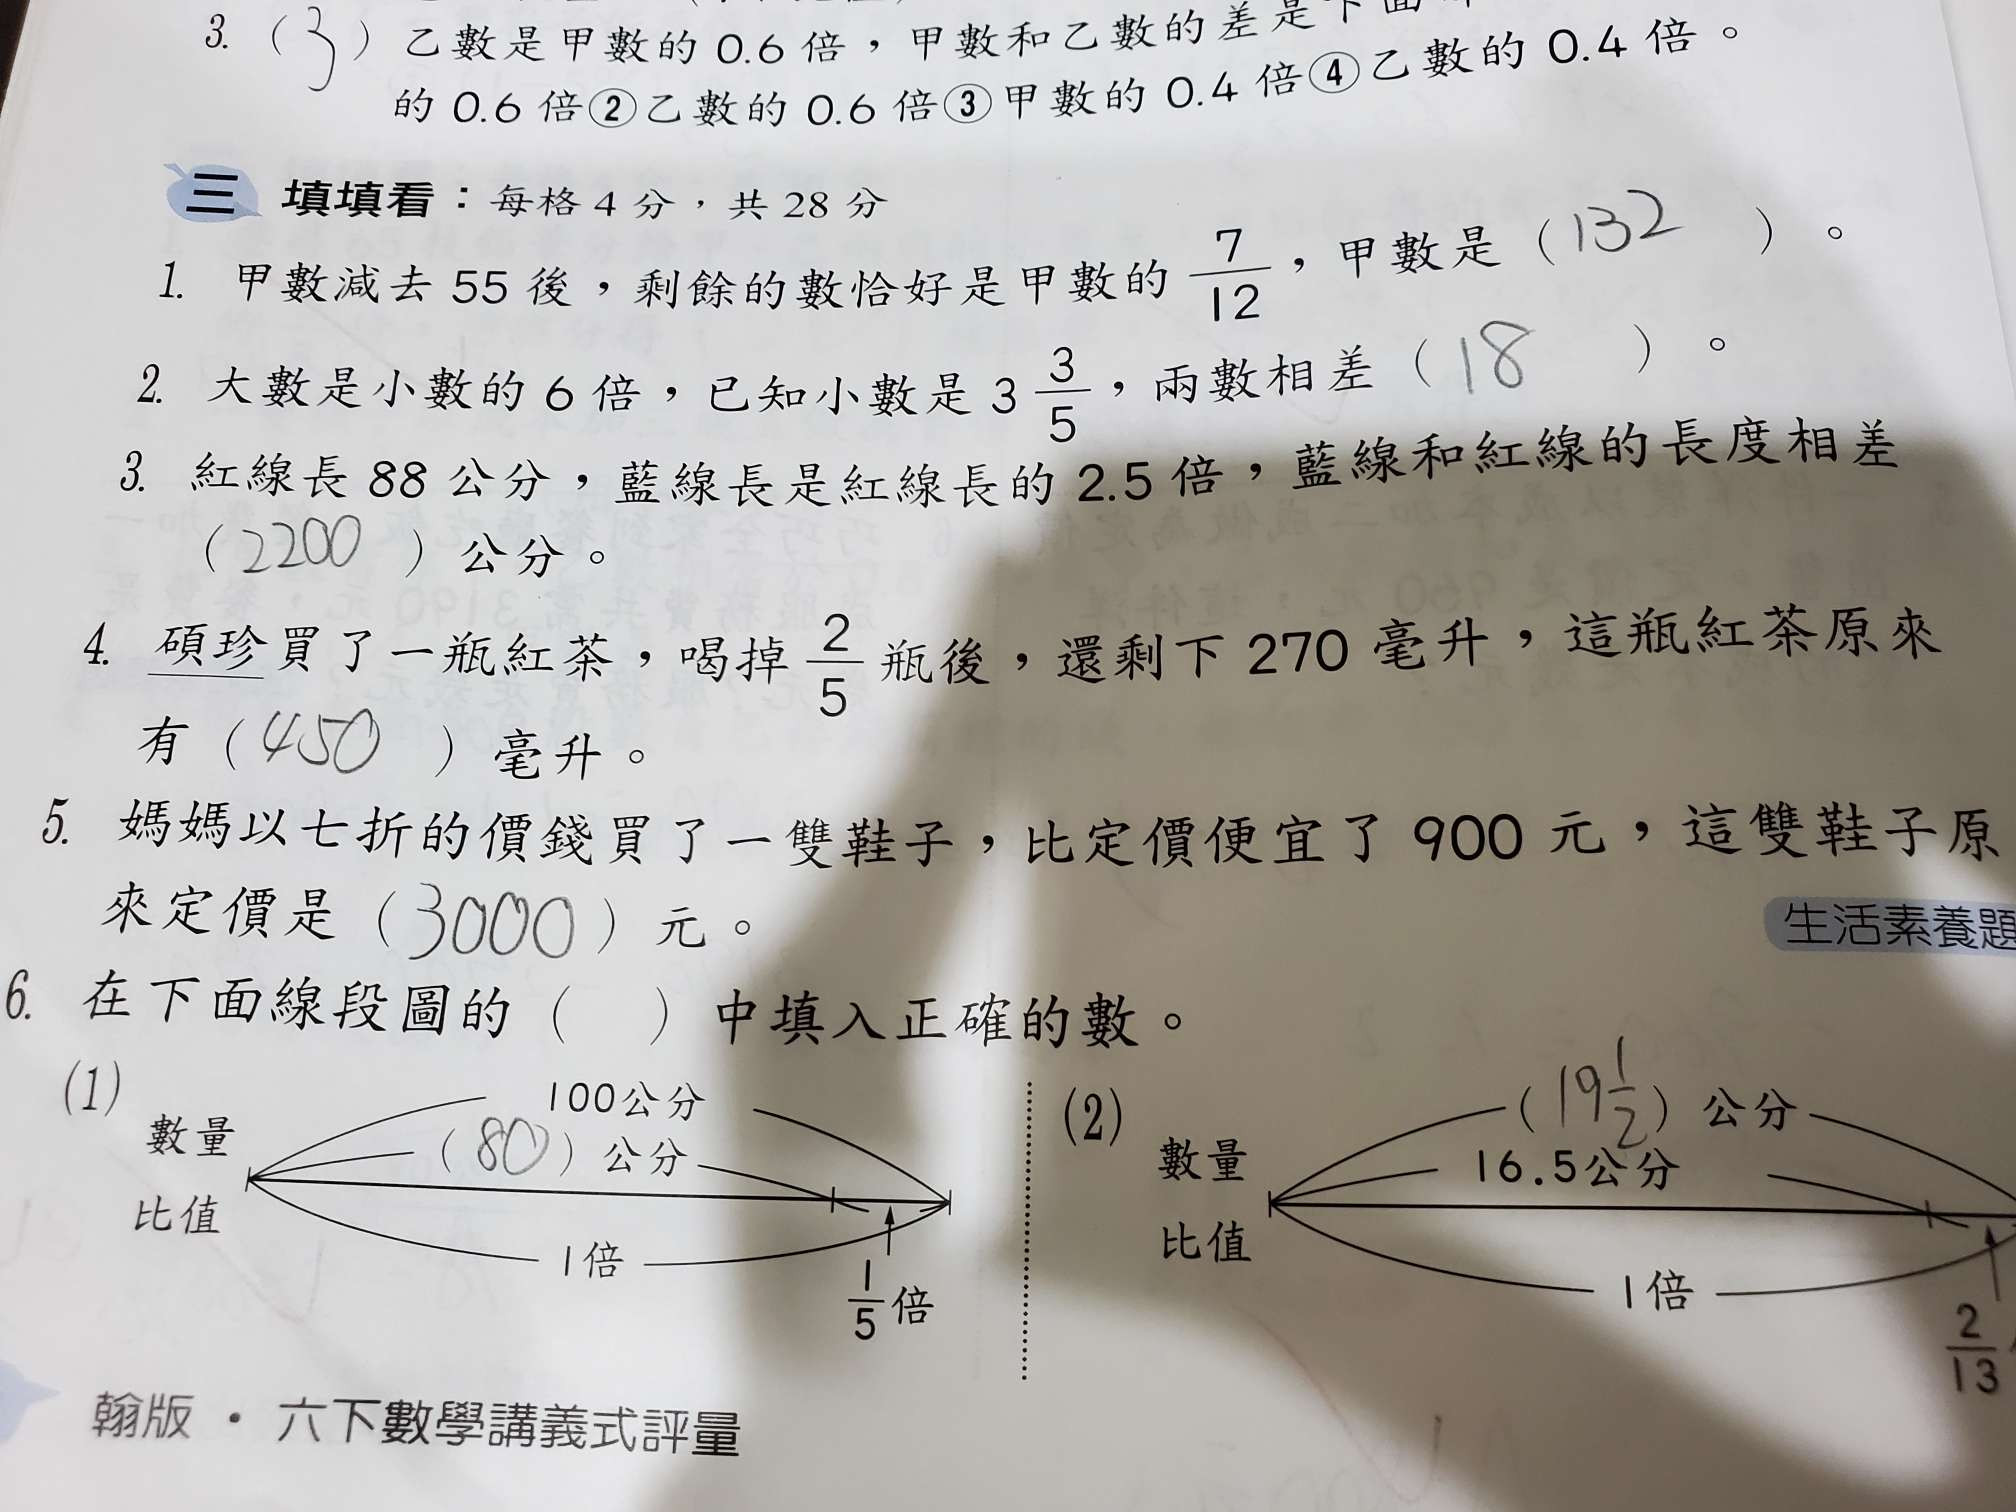 3. (3) 乙數是甲數的 0.6 倍，甲數和乙數的差是下面
的 0.6 倍②乙數的 0.6 倍③甲數的 0.4 倍④乙數的 0.4 倍。
三 填填看：每格 4 分，共 28 分
1. 甲數減去 55 後，剩餘的數恰好是甲數的 7/12，甲數是（132）。
2. 大數是小數的 6 倍，已知小數是 3 3/5，兩數相差（18）。
3. 紅線長 88 公分，藍線長是紅線長的 2.5 倍，藍線和紅線的長度相差
（2200）公分。
4. 碩珍買了一瓶紅茶，喝掉 2/5 瓶後，還剩下 270 毫升，這瓶紅茶原來
有（450）毫升。
5. 媽媽以七折的價錢買了一雙鞋子，比定價便宜了 900 元，這雙鞋子原
來定價是（3000）元。
生活素養題
6. 在下面線段圖的（ ）中填入正確的數。
(1)
數量
比值
100公分
（80）公分
1倍
1/5倍
(2)
數量
比值
（19 1/2）公分
16.5公分
1倍
2/13
翰版・六下數學講義式評量